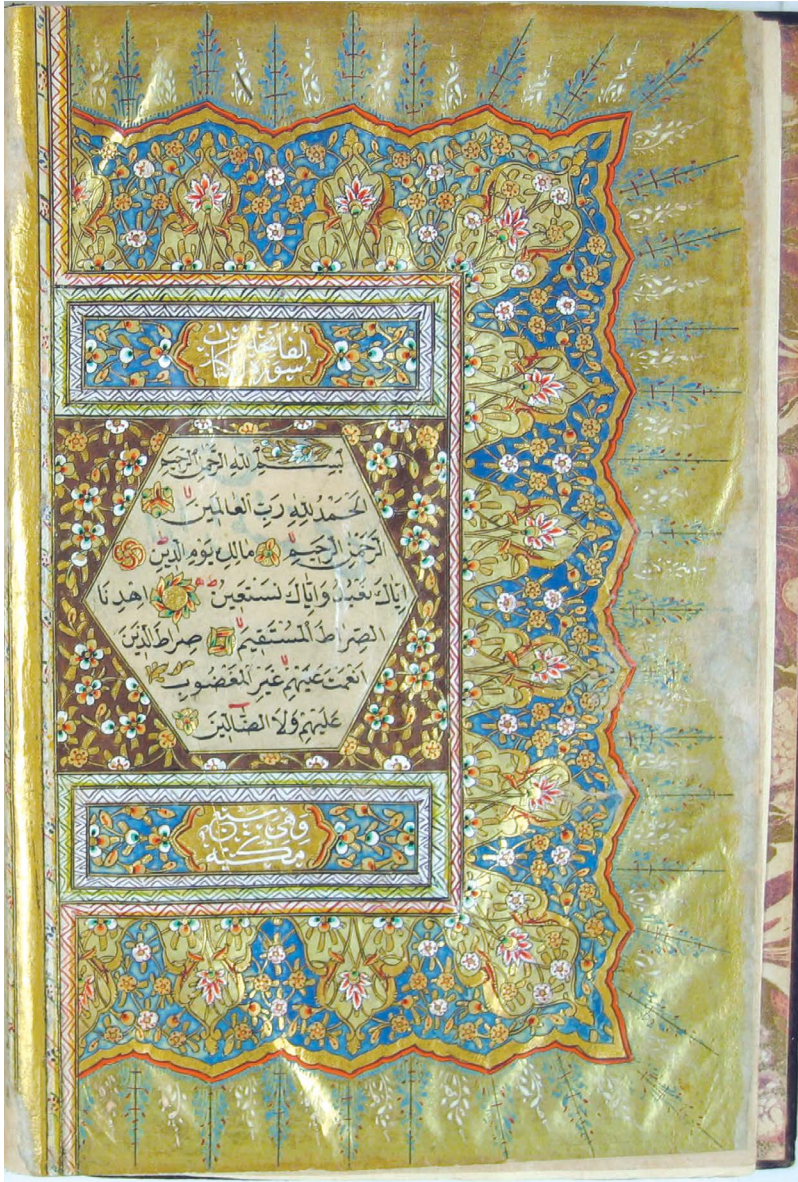 سورة فاتحة الكتاب
بِسْمِ اللهِ الرَّحْمٰنِ الرَّحِيمِ
اَلْحَمْدُ لِلّٰهِ رَبِّ الْعَالَمِينَ
اَلرَّحْمٰنِ الرَّحِيمِ مَالِكِ يَوْمِ الدِّينِ
اِيَّاكَ نَعْبُدُ وَاِيَّاكَ نَسْتَعِينُ اِهْدِنَا
الصِّرَاطَ الْمُسْتَقِيمَ صِرَاطَ الَّذِينَ
اَنْعَمْتَ عَلَيْهِمْ غَيْرِ الْمَغْضُوبِ
عَلَيْهِمْ وَلَا الضَّالِّينَ
وهي
مكية